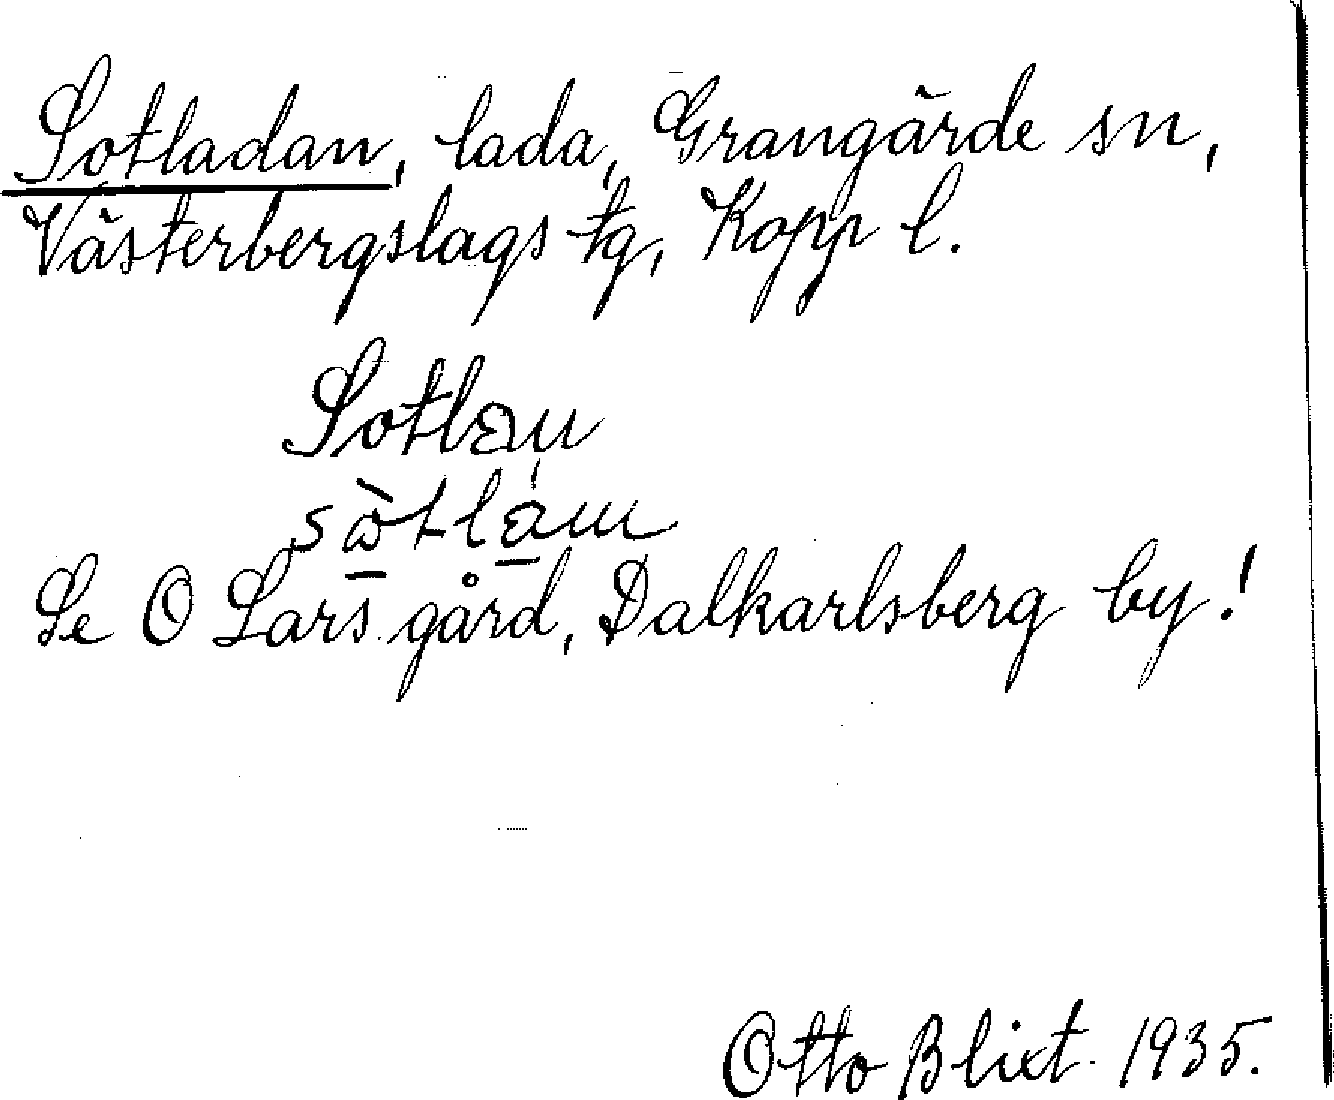 Sotladan, lada, Grangärde sn,
Västerbergslags tg, Kopp l.
Sotlan
Se O Lars gård, Dalkarlsberg by!
Otto Blixt 1935.